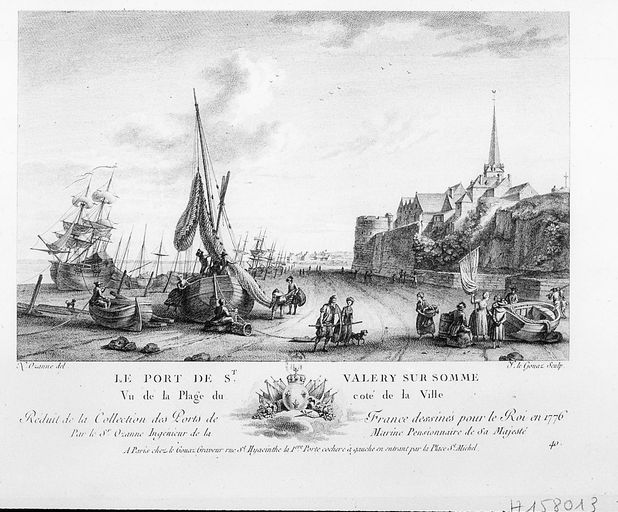 N. Ozanne del.
Y. le Gouaz Sculp.
LE PORT DE S.T VALERY SUR SOMME
Vu de la Plage du coté de la Ville
Reduit de la Collection des Ports de France dessinés pour le Roi en 1776
Par le S.r Ozanne Ingénieur de la Marine Pensionnaire de Sa Majesté
A Paris chez le Gouaz Graveur rue S.t Hyacinthe la 1.ere Porte cochere à gauche en entrant par la Place S.t Michel.
40.
H158013